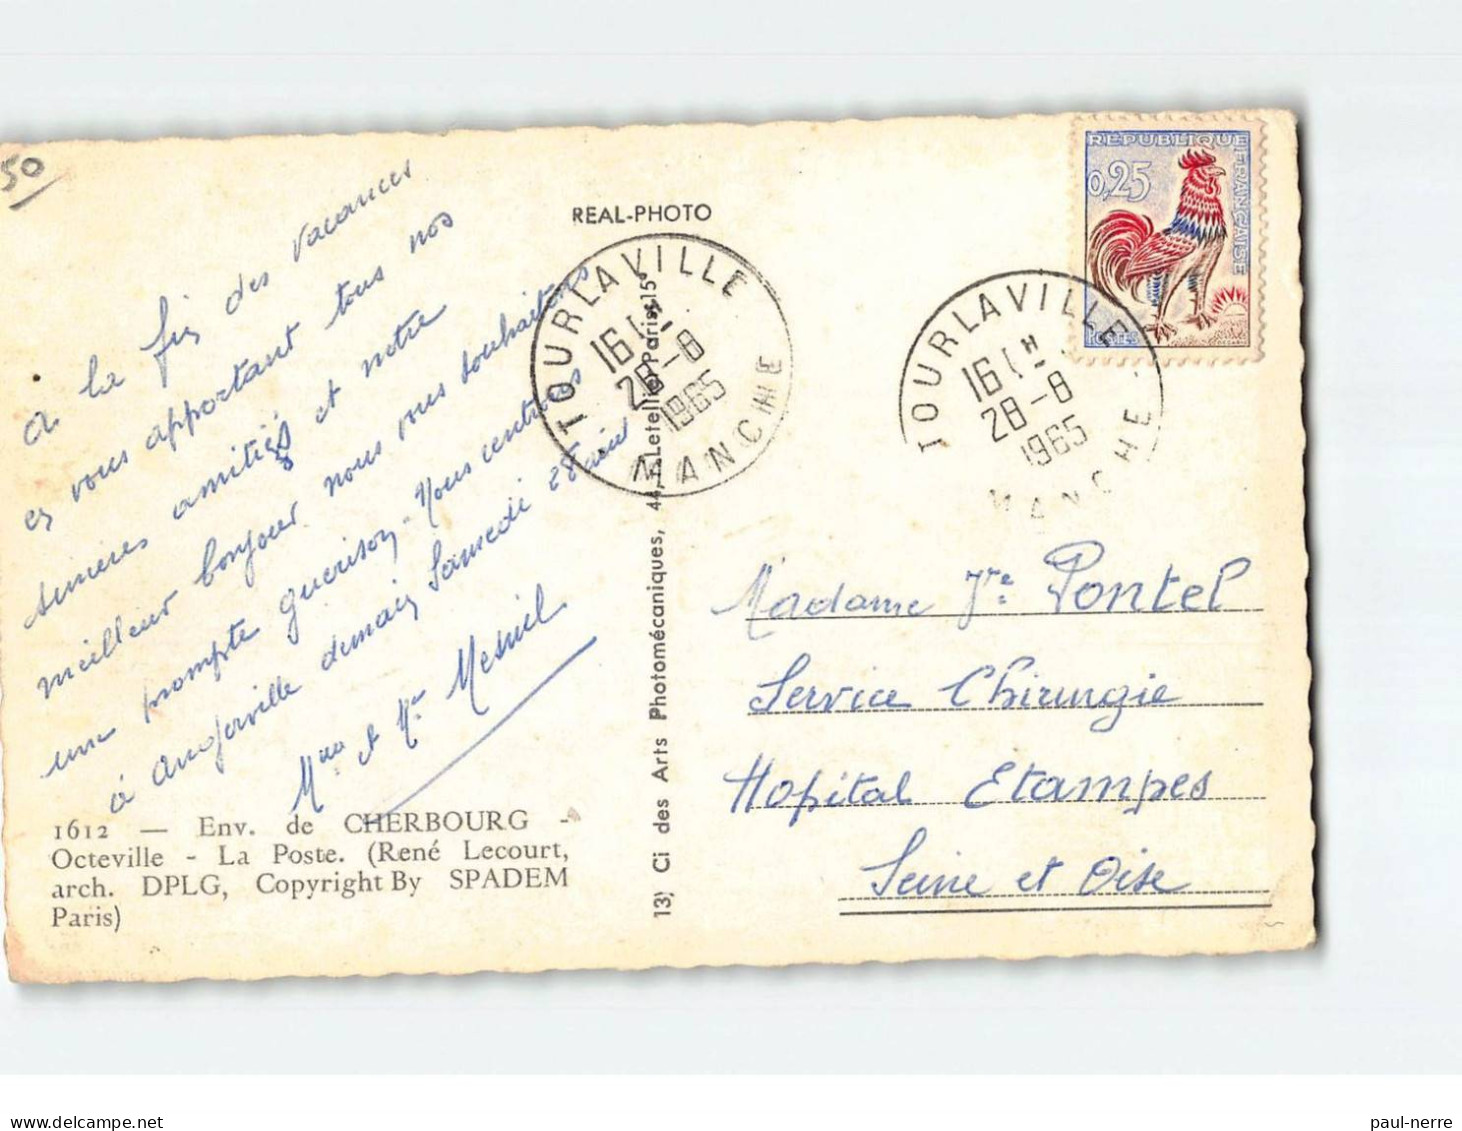 50
à la fin des vacances
en vous apportant tous nos
sincères amitiés et notre
meilleur bonjour nous vous souhaitons
une prompte guérison. Nous rentrons
à Angerville demain Samedi 28
Mme et Mr Mesnil
1612 — Env. de CHERBOURG -
Octeville - La Poste. (René Lecourt,
arch. DPLG, Copyright By SPADEM
Paris)
REAL-PHOTO
13) Ci des Arts Photomécaniques, 44, Letellier Paris 15e
TOURLAVILLE
16 H
28-8
1965
MANCHE
TOURLAVILLE
16 H
28-8
1965
MANCHE
RÉPUBLIQUE FRANÇAISE
0,25
POSTES
Madame Pontel
Service Chirurgie
Hopital Etampes
Seine et Oise
paul-nerre